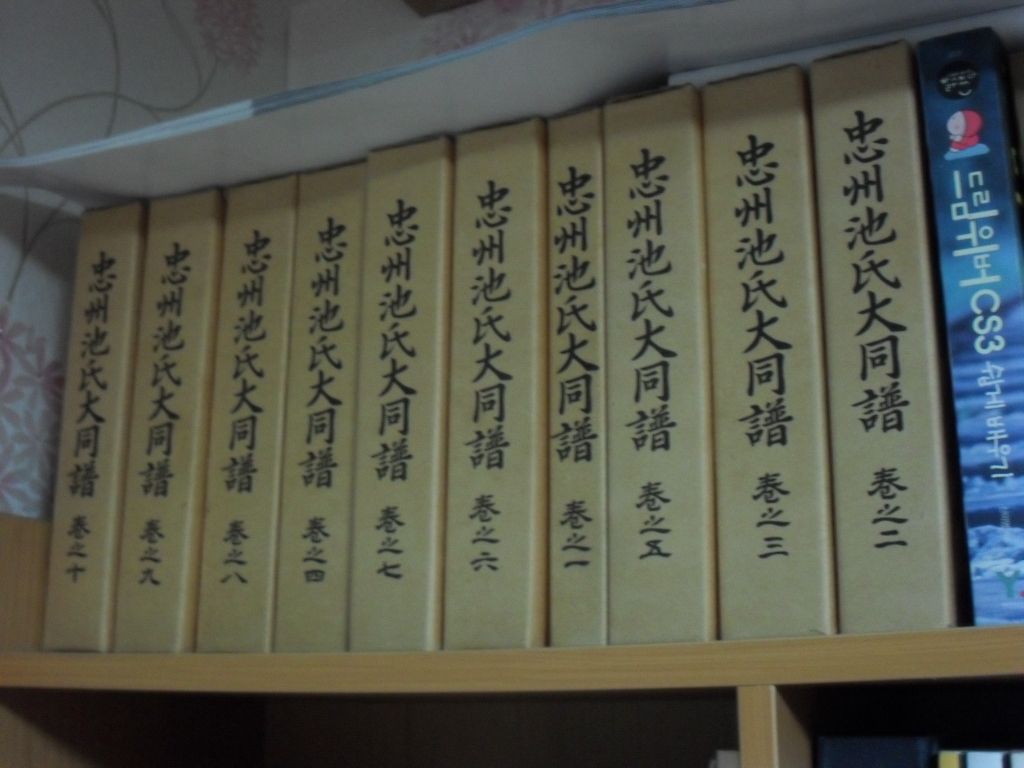 忠州池氏大同譜 巻之十
忠州池氏大同譜 巻之九
忠州池氏大同譜 巻之八
忠州池氏大同譜 巻之四
忠州池氏大同譜 巻之七
忠州池氏大同譜 巻之六
忠州池氏大同譜 巻之一
忠州池氏大同譜 巻之五
忠州池氏大同譜 巻之三
忠州池氏大同譜 巻之二
드림위버 CS3 쉽게 배우기